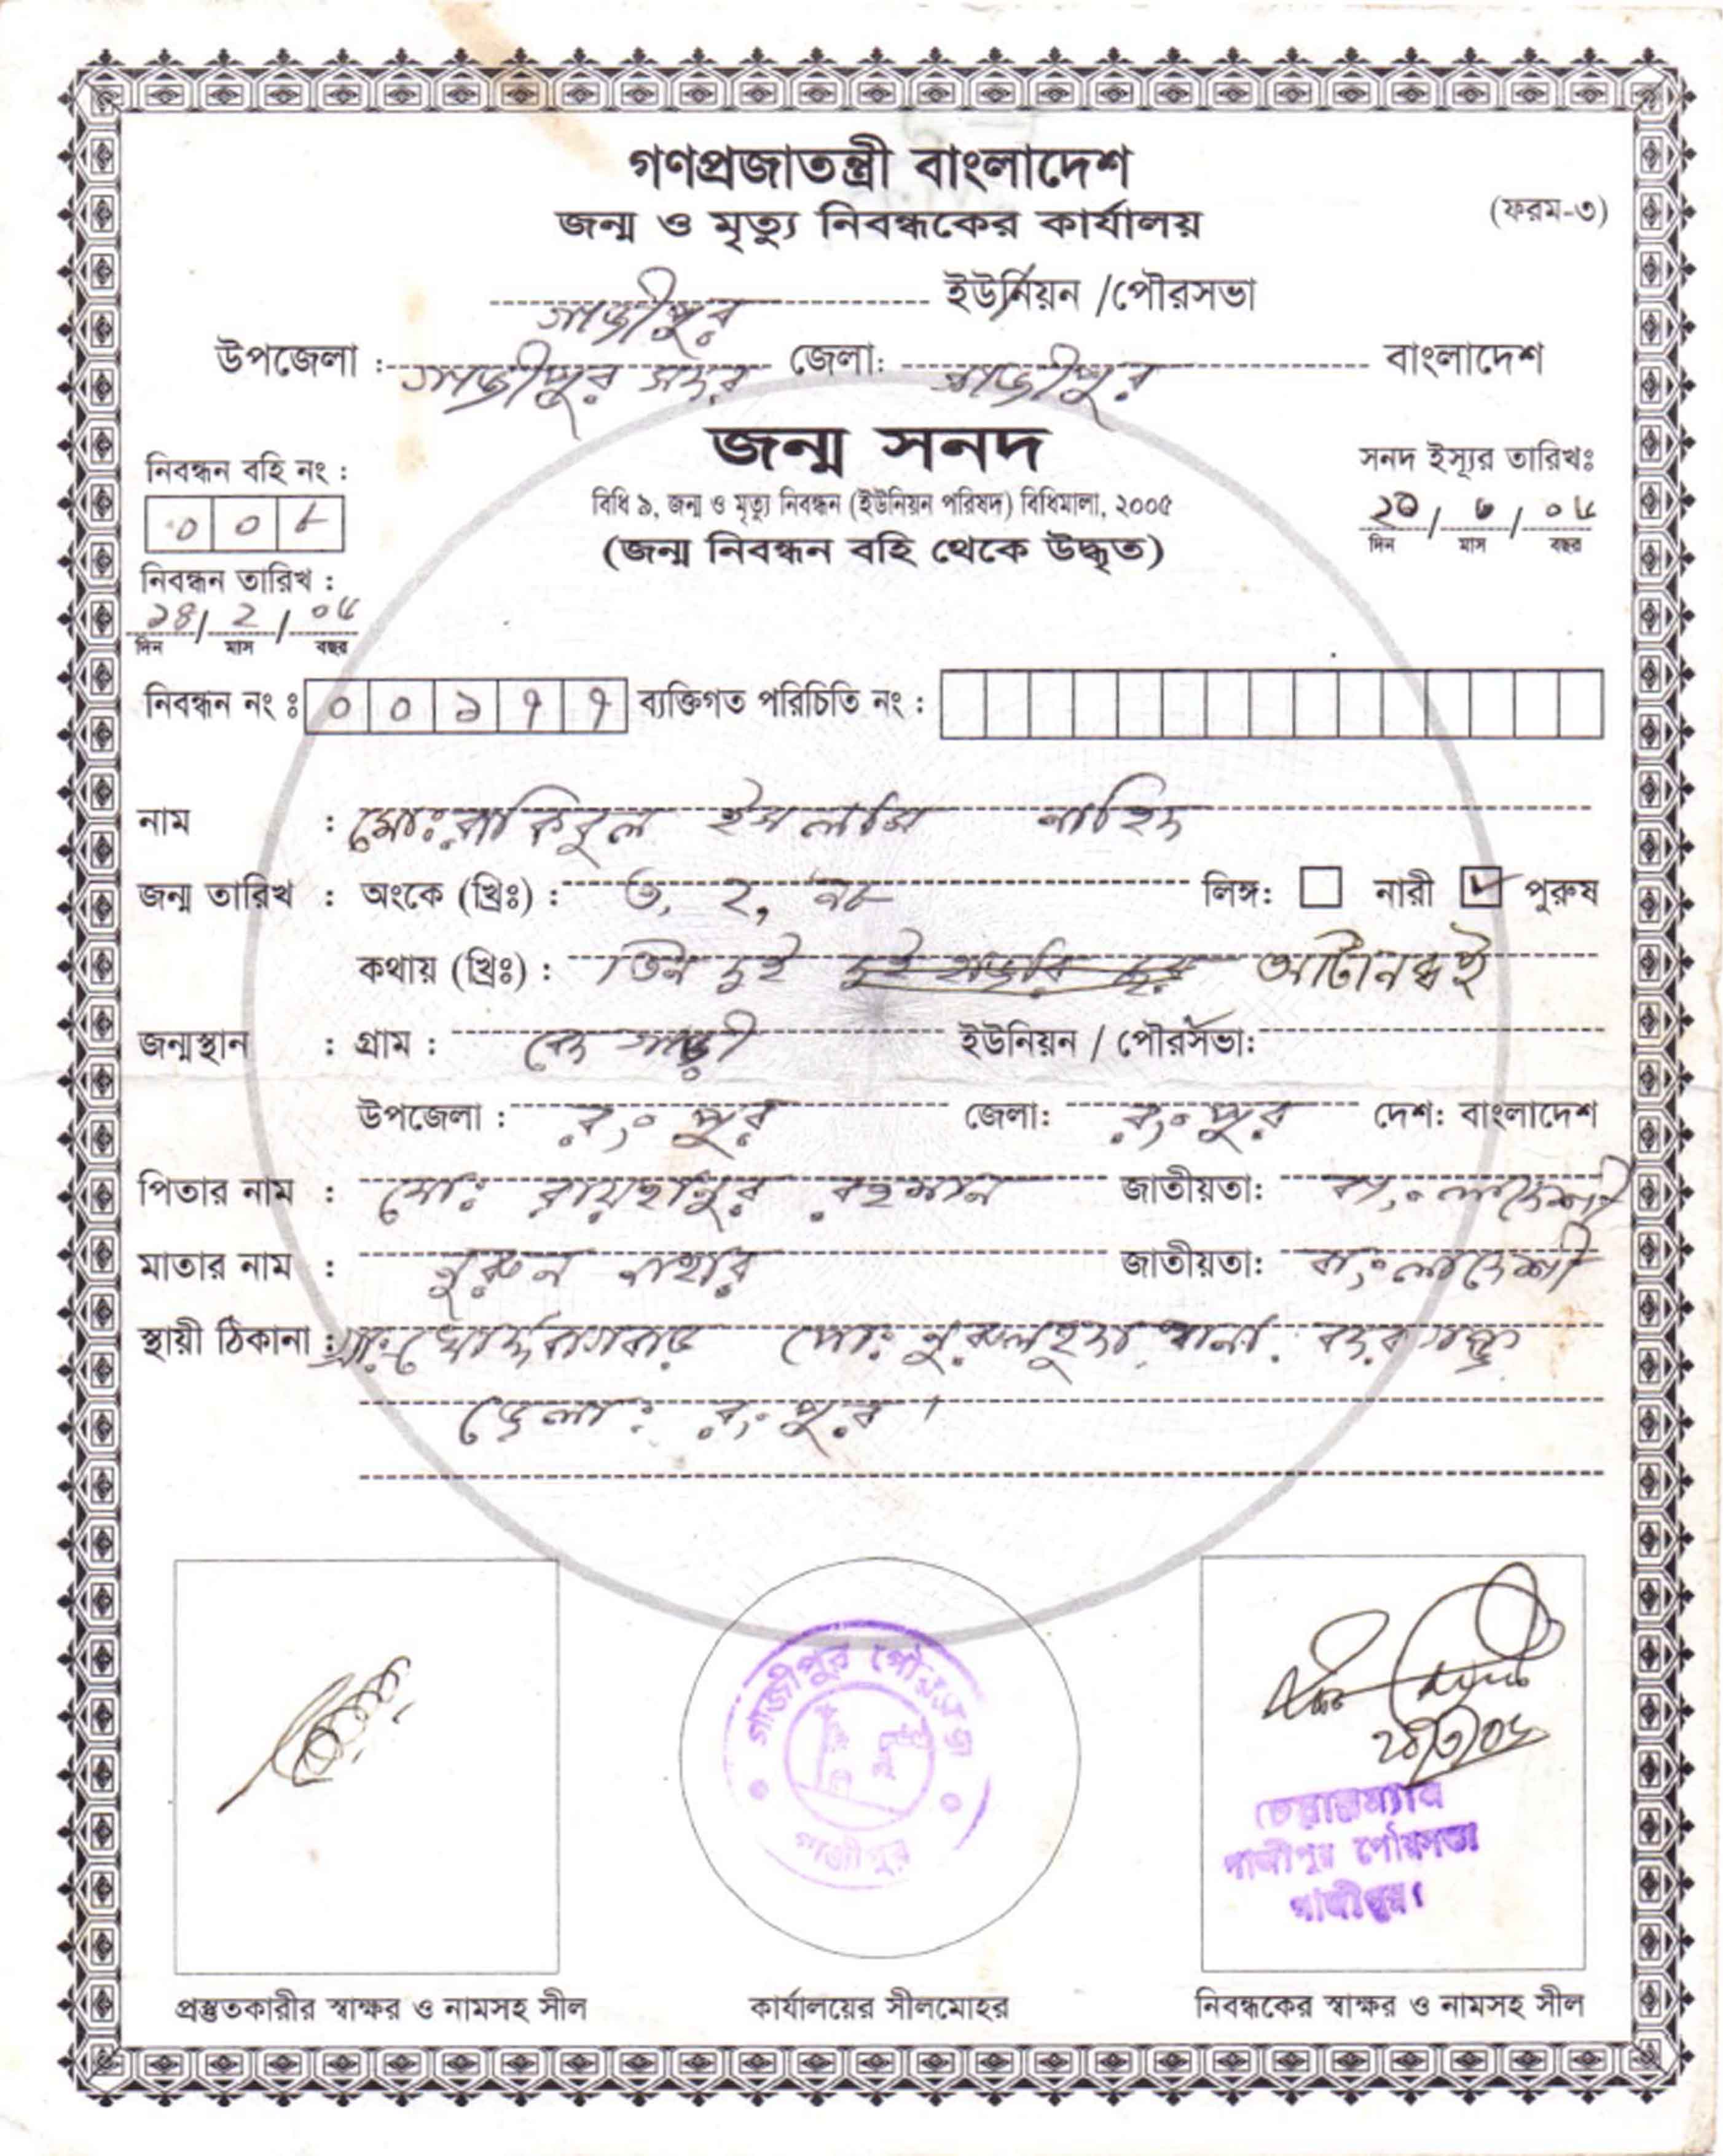 গণপ্রজাতন্ত্রী বাংলাদেশ
জন্ম ও মৃত্যু নিবন্ধকের কার্যালয়
(ফরম-৩)
গাজীপুর ইউনিয়ন /পৌরসভা
উপজেলা : গাজীপুর সদর জেলা: গাজীপুর বাংলাদেশ
জন্ম সনদ
নিবন্ধন বহি নং :
সনদ ইস্যুর তারিখঃ
বিধি ৯, জন্ম ও মৃত্যু নিবন্ধন (ইউনিয়ন পরিষদ) বিধিমালা, ২০০৫
০ ০ ৮
দিন মাস বছর
(জন্ম নিবন্ধন বহি থেকে উদ্ধৃত)
নিবন্ধন তারিখ :
১৪/ ২ /
দিন মাস বছর
নিবন্ধন নং ঃ ০ ০ ১ ৭ ৭ ব্যক্তিগত পরিচিতি নং :
নাম : মোঃ রাকিবুল ইসলাম নাহিদ
জন্ম তারিখ : অংকে (খ্রিঃ) : ৩, ২, ৯৮ লিঙ্গ: নারী পুরুষ
কথায় (খ্রিঃ) : তিন দুই আটানব্বই
জন্মস্থান : গ্রাম : ইউনিয়ন / পৌরসভা:
উপজেলা : রংপুর জেলা: রংপুর দেশ: বাংলাদেশ
পিতার নাম : মোঃ রায়হানুর রহমান জাতীয়তা: বাংলাদেশী
মাতার নাম : নুরুন নাহার জাতীয়তা: বাংলাদেশী
স্থায়ী ঠিকানা : গ্রাঃ পোঃ নুরুলহুদা থানা: বদরগঞ্জ
জেলাঃ রংপুর।
গাজীপুর পৌরসভা
গাজীপুর
চেয়ারম্যান
গাজীপুর পৌরসভা
গাজীপুর।
প্রস্তুতকারীর স্বাক্ষর ও নামসহ সীল
কার্যালয়ের সীলমোহর
নিবন্ধকের স্বাক্ষর ও নামসহ সীল